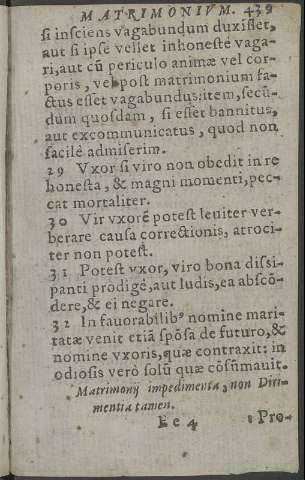 MATRIMONIVM. 439
si insciens vagabundum duxisset,
aut si ipse vellet inhonestè vaga-
ri, aut cũ periculo animæ vel cor-
poris, vel post matrimonium fa-
ctus esset vagabundus: item, secũ-
dum quosdam, si esset bannitus,
aut excommunicatus, quod non
facilè admiserim.
29 Vxor si viro non obedit in re
honesta, & magni momenti, pec-
cat mortaliter.
30 Vir vxorẽ potest leuiter ver-
berare causa correctionis, atroci-
ter non potest.
31 Potest vxor, viro bona dissi-
panti prodigè, aut ludis, ea abscõ-
dere, & ei negare.
32 In fauorabilibꝰ nomine mari-
tatæ venit etiã spõsa de futuro, &
nomine vxoris, quæ contraxit: in
odiosis verò solũ quæ cõsũmauit.
Matrimonij impedimenta, non Diri-
mentia tamen.
Ee 4 1 Pro-